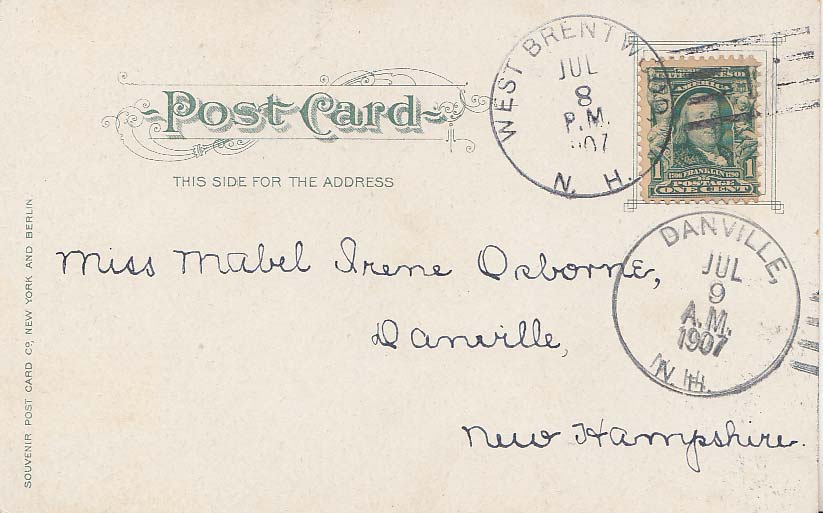 WEST BRENTWOOD
JUL
8
P.M.
1907
N. H.
Post Card
THIS SIDE FOR THE ADDRESS
1 FRANKLIN 1
POSTAGE
ONE CENT
DANVILLE,
JUL
9
A.M.
1907
N.H.
Miss Mabel Irene Osborne,
Danville,
New Hampshire.
SOUVENIR POST CARD Cº, NEW YORK AND BERLIN